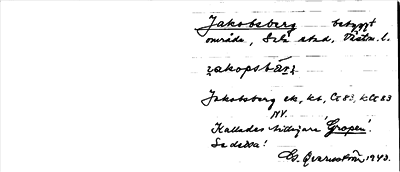 Jakobsberg bebyggt
område, Sala stad, Västm. l.
Jakobsberg ek, ks, CE83, KCE83
NV.
Kallades tidigare 'Gropen'.
Se detta!
G. Qvarnström 1943.